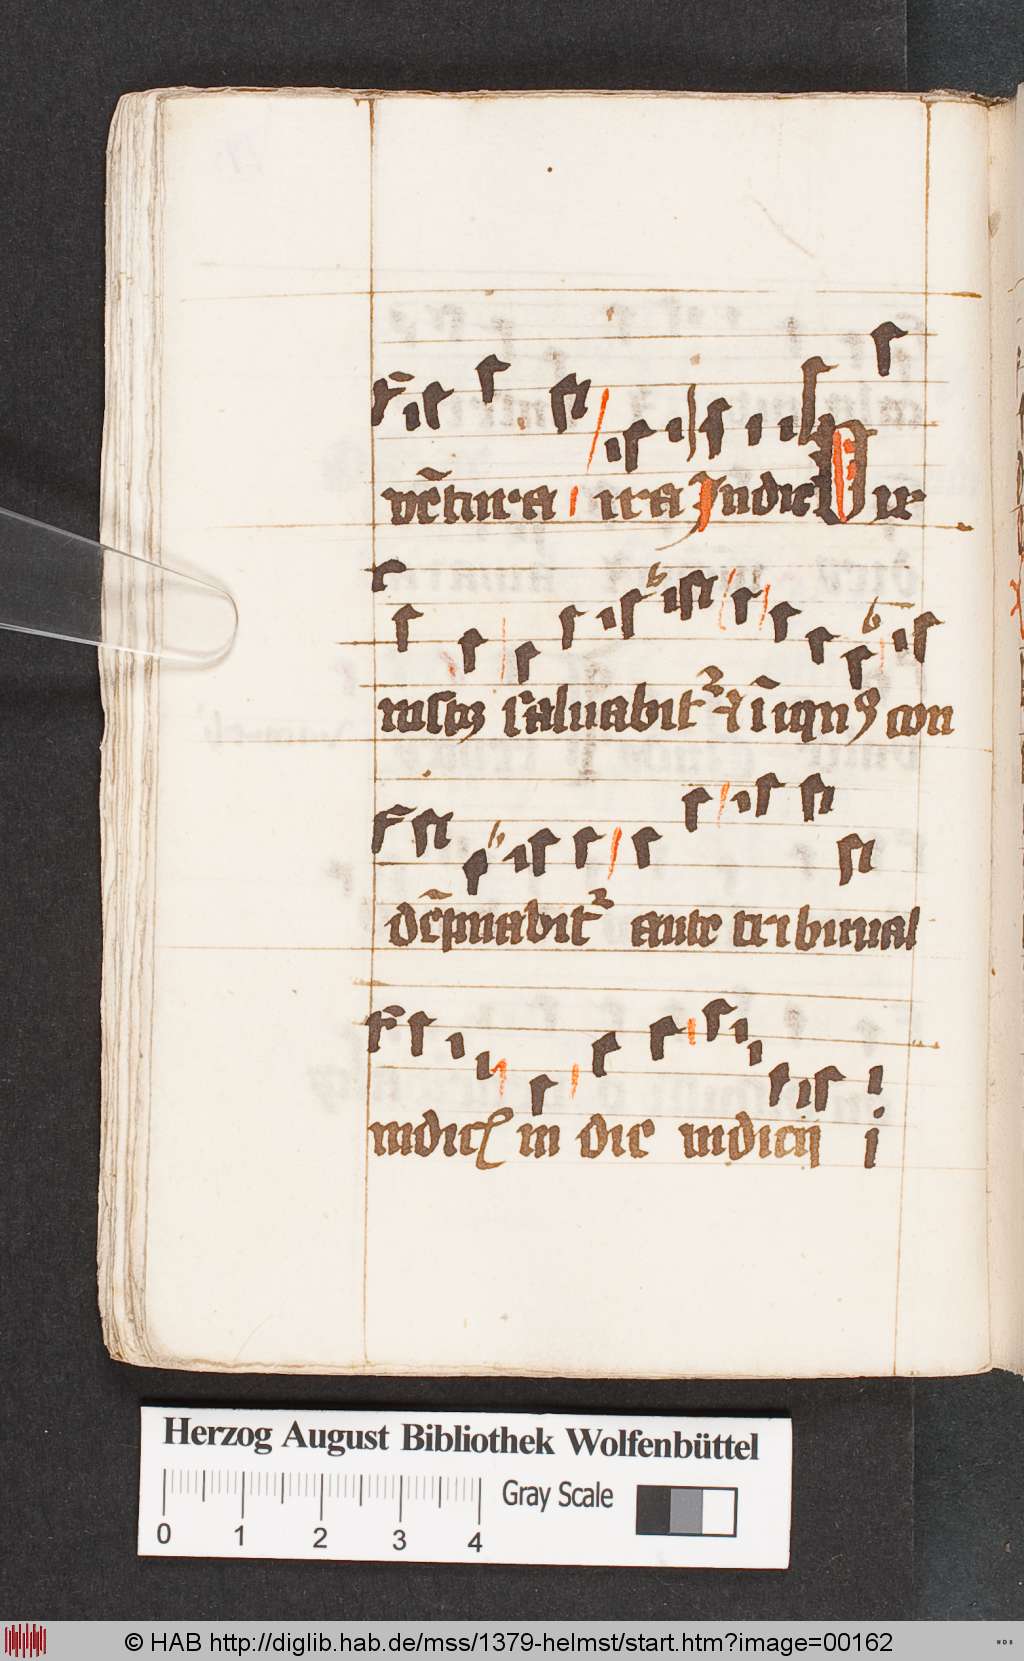 ve᷃tura ira Judic᷃ Vir
iustꝫ saluabit᷑ ⁊ i᷃iquꝰ con
de᷃pnabit᷑ ante tribunal
iudicꝭ in die iudicij i
Herzog August Bibliothek Wolfenbüttel
Gray Scale
0 1 2 3 4
© HAB http://diglib.hab.de/mss/1379-helmst/start.htm?image=00162